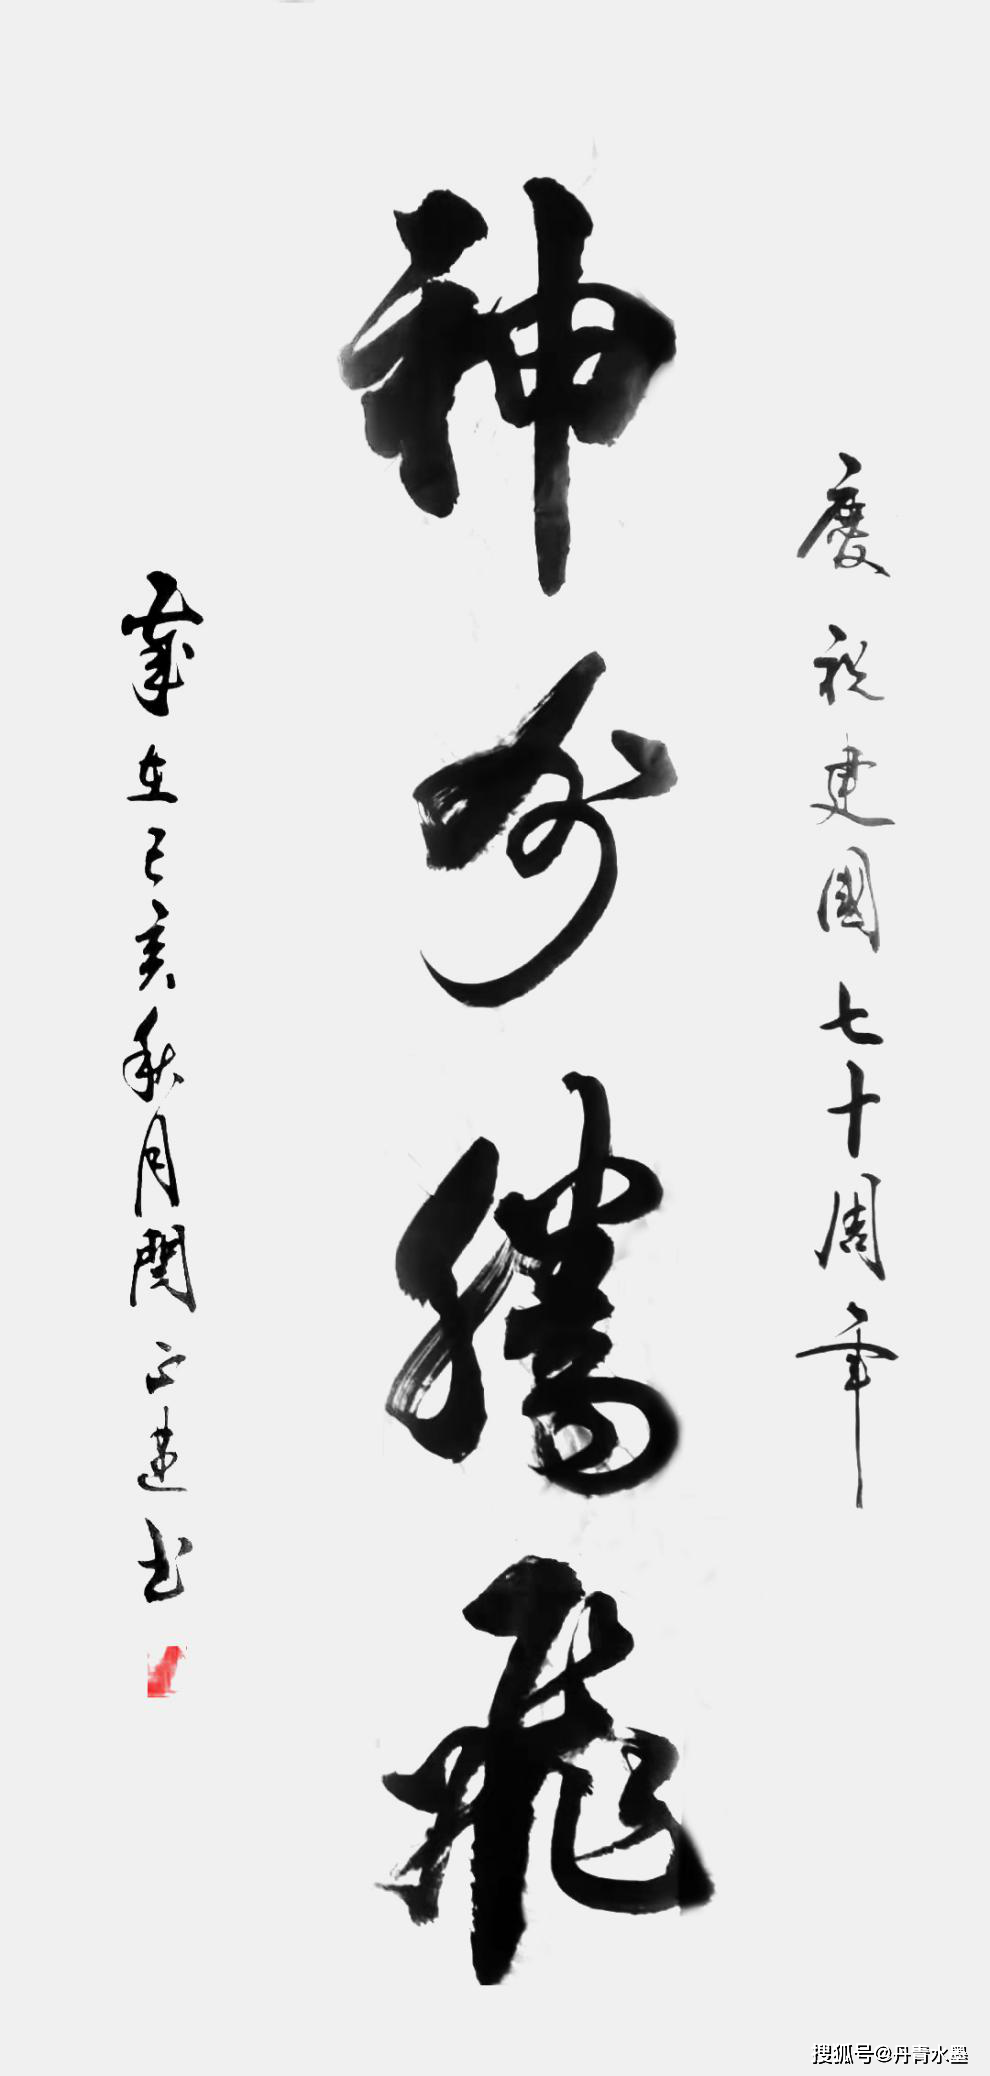 慶祝建國七十周年
神州騰飛
歲在己亥秋月閔正建书
搜狐号@丹青水墨